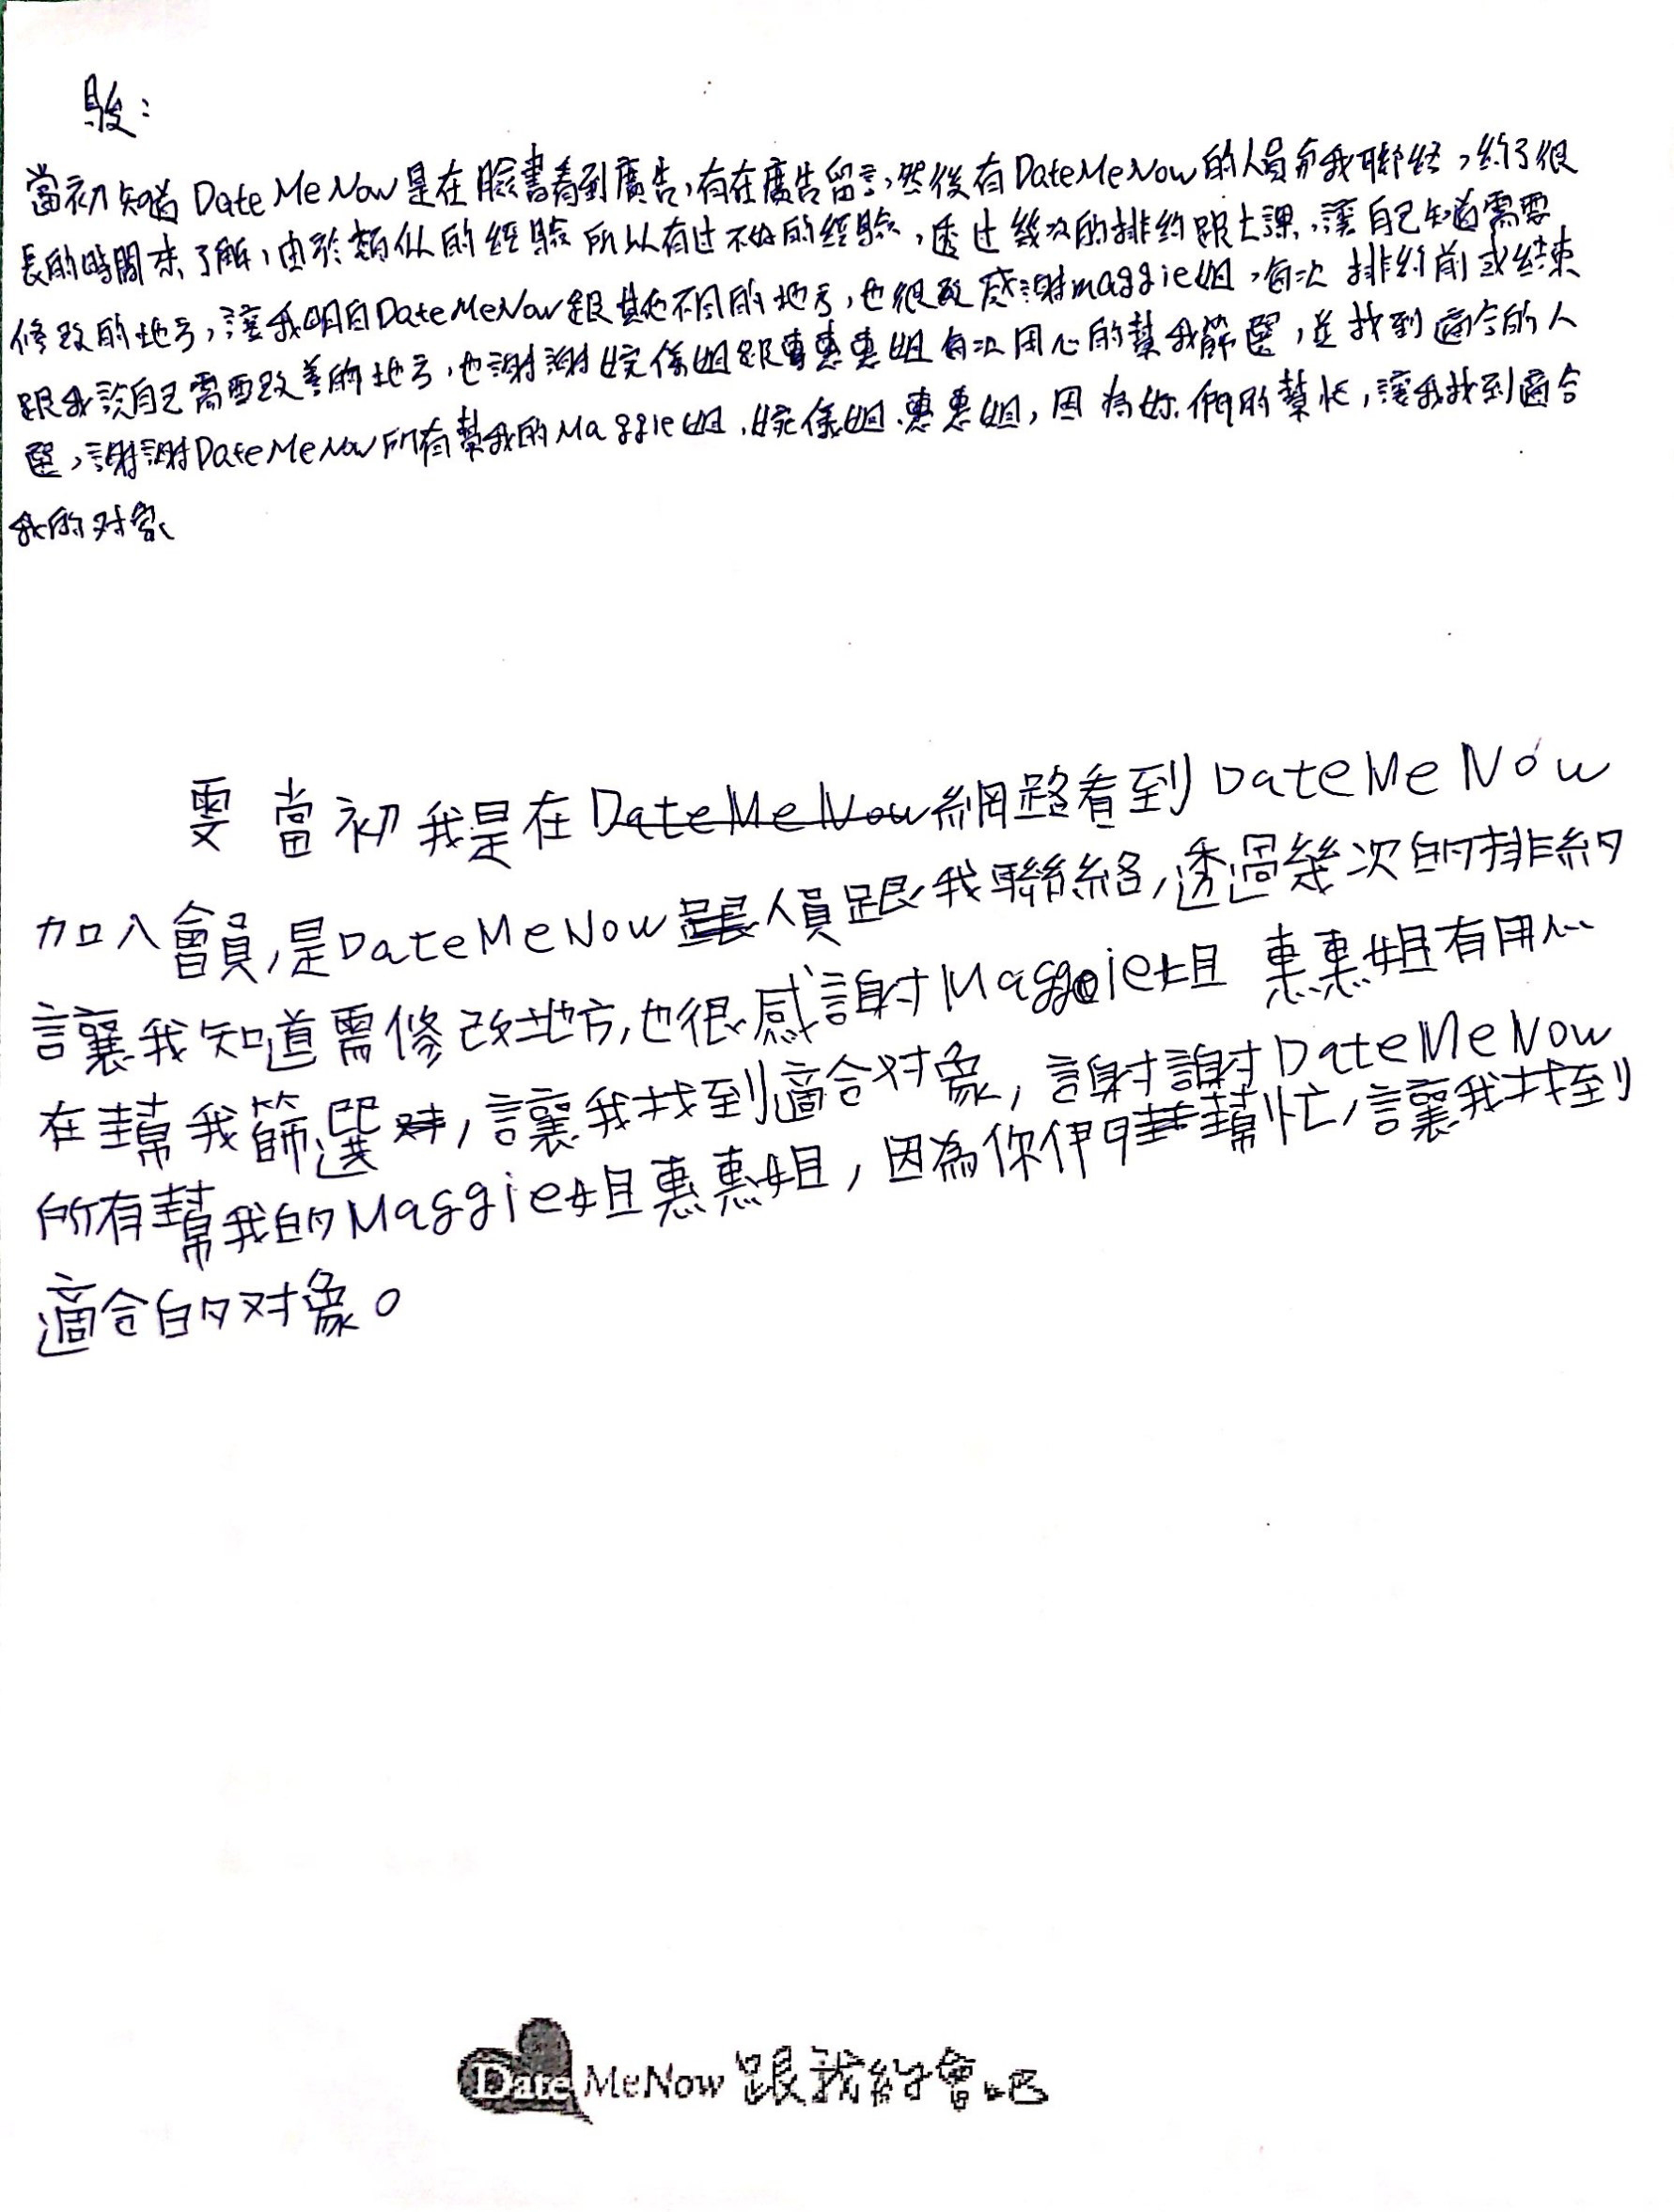 駿：
當初知道DateMeNow是在臉書看到廣告,有在廣告留言,然後有DateMeNow的人員和我聯絡,約了很
長的時間來了解,由於類似的經驗所以有过不好的經驗,透过幾次的排約跟上課,讓自己知道需要
修改的地方,讓我明白DateMeNow跟其他不同的地方,也很感謝maggie姐,每次排約前或結束
跟我說自己需要改善的地方,也謝謝婉儀姐跟惠惠姐每次用心的幫我篩選,並找到適合的人
選,謝謝DateMeNow所有幫我的Maggie姐.婉儀姐.惠惠姐,因為妳們的幫忙,讓我找到適合
我的对象
雯 當初我是在網路看到DateMeNow
加入會員,是DateMeNow人員跟我聯絡,透過幾次的排約
讓我知道需修改地方,也很感謝Maggie姐 惠惠姐有用心
在幫我篩選,讓我找到適合对象,謝謝DateMeNow
所有幫我的Maggie姐惠惠姐,因為你們幫忙,讓我找到
適合的对象。
Date MeNow 跟我約會吧